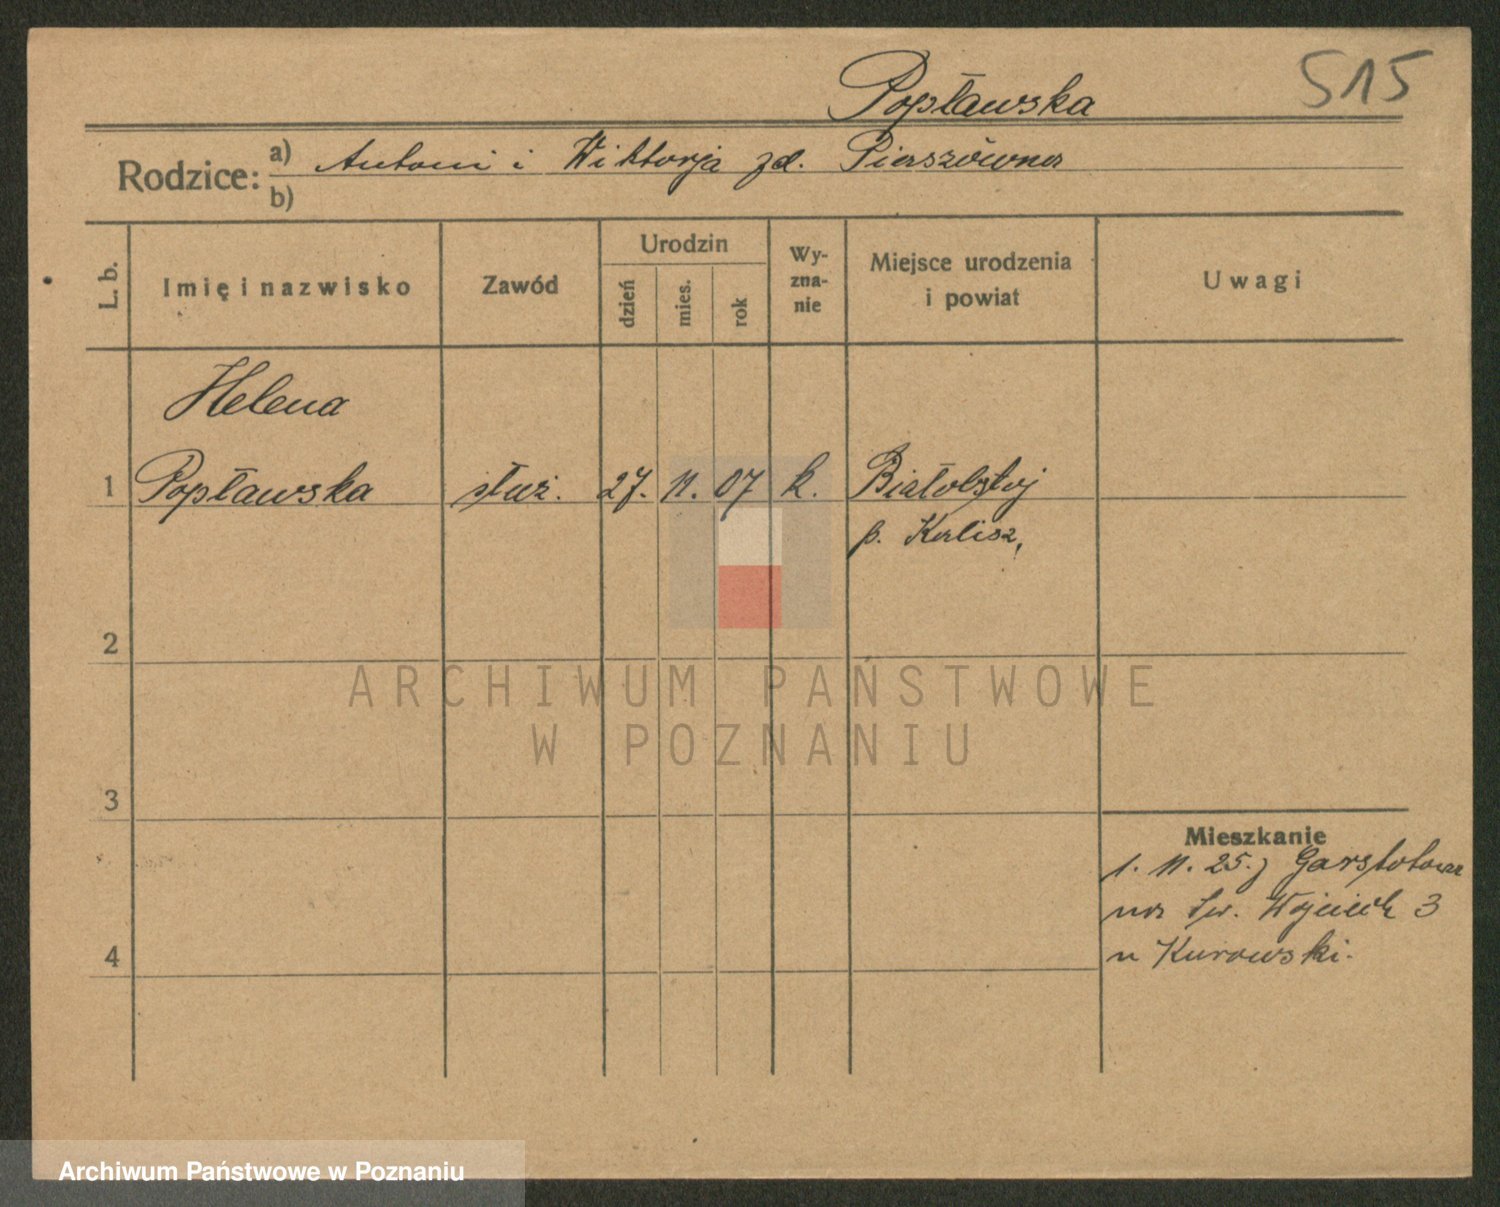 Popławska
515
Rodzice: a) Antoni i Wiktorja zd. Pierszówna
b)
L. b.
Imię i nazwisko
Zawód
Urodzin
dzień
mies.
rok
Wy-
zna-
nie
Miejsce urodzenia
i powiat
Uwagi
Helena
1 Popławska służ. 27. 11. 07 k.
p. Kalisz,
2
ARCHIWUM PAŃSTWOWE
W POZNANIU
3
Mieszkanie
1. 11. 25. z
na św. Wojciech 3
4
u Kurowski.
Archiwum Państwowe w Poznaniu